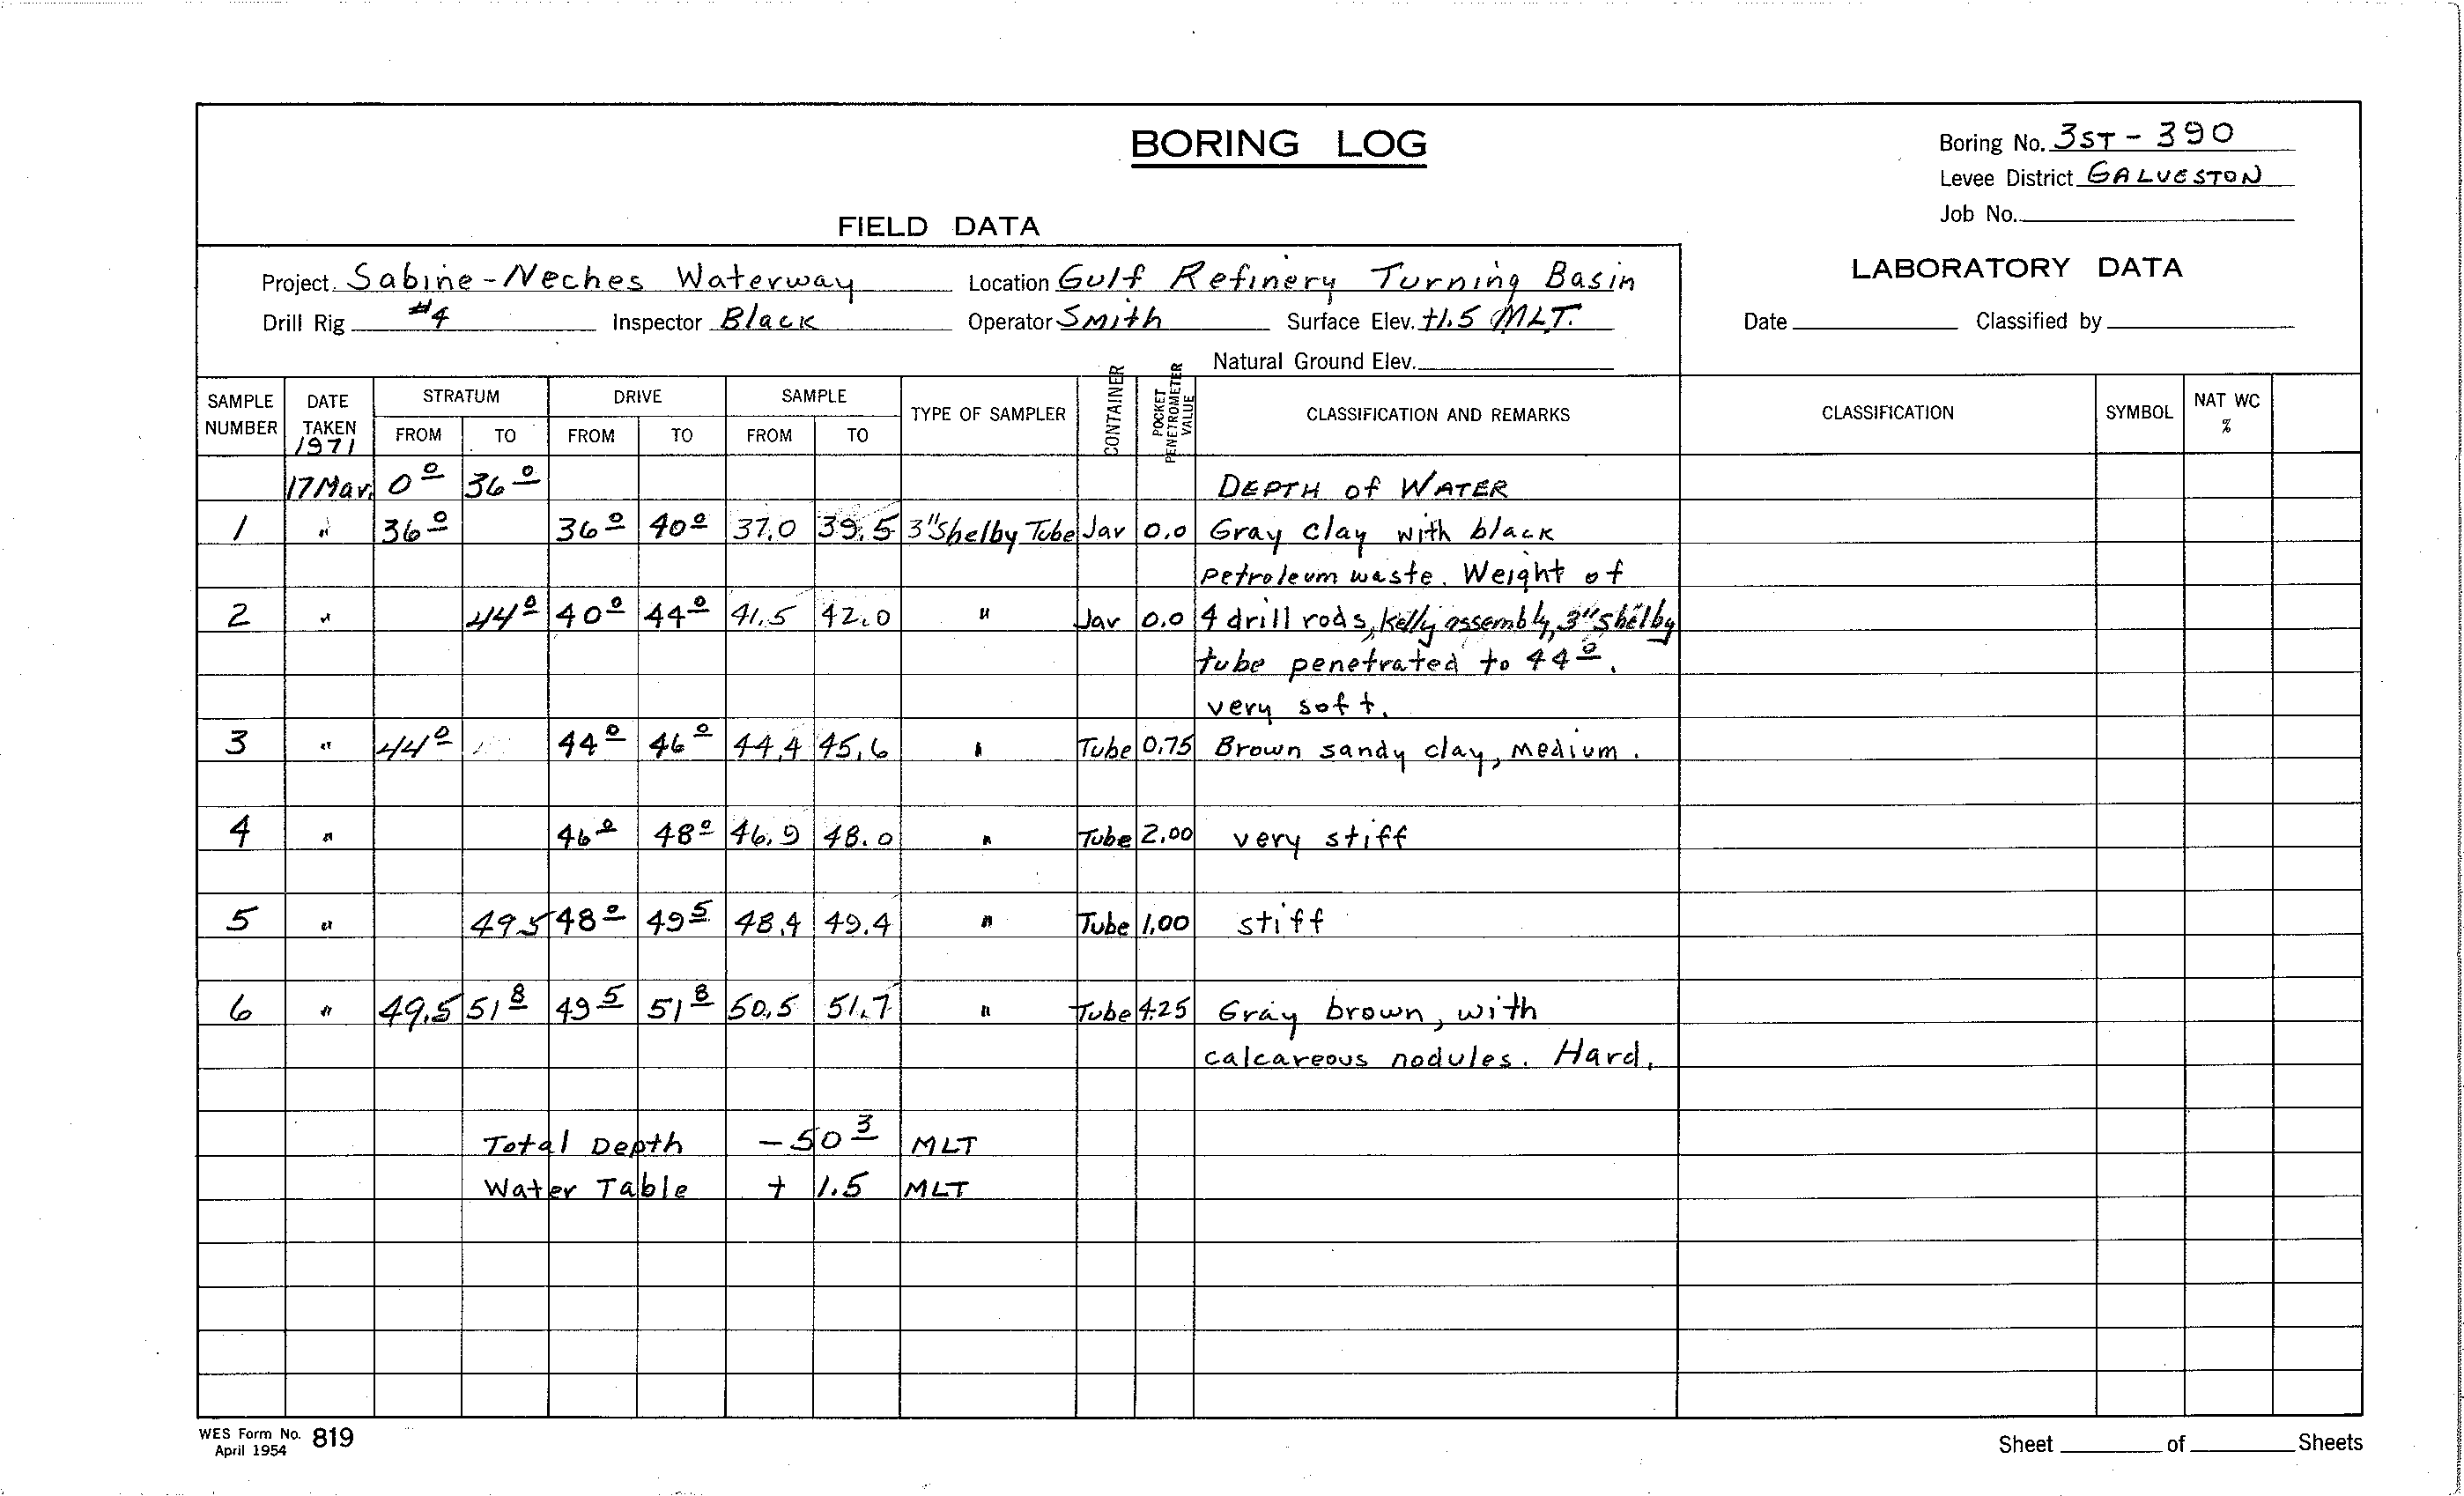 BORING LOG
Boring No. 3ST - 390
Levee District GALVESTON
Job No.
FIELD DATA
LABORATORY DATA
Project Sabine-Neches Waterway Location Gulf Refinery Turning Basin
Drill Rig #4 Inspector Black Operator Smith Surface Elev. +1.5 MLT. Date Classified by
Natural Ground Elev.
SAMPLE NUMBER DATE TAKEN 1971 STRATUM FROM TO DRIVE FROM TO SAMPLE FROM TO TYPE OF SAMPLER CONTAINER POCKET PENETROMETER VALUE CLASSIFICATION AND REMARKS CLASSIFICATION SYMBOL NAT WC %
17 Mar. 0 0 36 0 DEPTH of WATER
1 " 36 0 36 0 40 0 37.0 39.5 3" Shelby Tube Jar 0.0 Gray clay with black
petroleum waste. Weight of
2 " 44 0 40 0 44 0 41.5 42.0 " Jar 0.0 4 drill rods, kelly assembly, 3" shelby
tube penetrated to 44 0.
very soft.
3 " 44 0 44 0 46 0 44.4 45.6 " Tube 0.75 Brown sandy clay, medium.
4 " 46 0 48 0 46.9 48.0 " Tube 2.00 very stiff
5 " 49.5 48 0 49 5 48.4 49.4 " Tube 1.00 stiff
6 " 49.5 51 8 49 5 51 8 50.5 51.7 " Tube 4.25 Gray brown, with
calcareous nodules. Hard.
Total Depth - 50 3 MLT
Water Table + 1.5 MLT
WES Form No. 819
April 1954
Sheet of Sheets